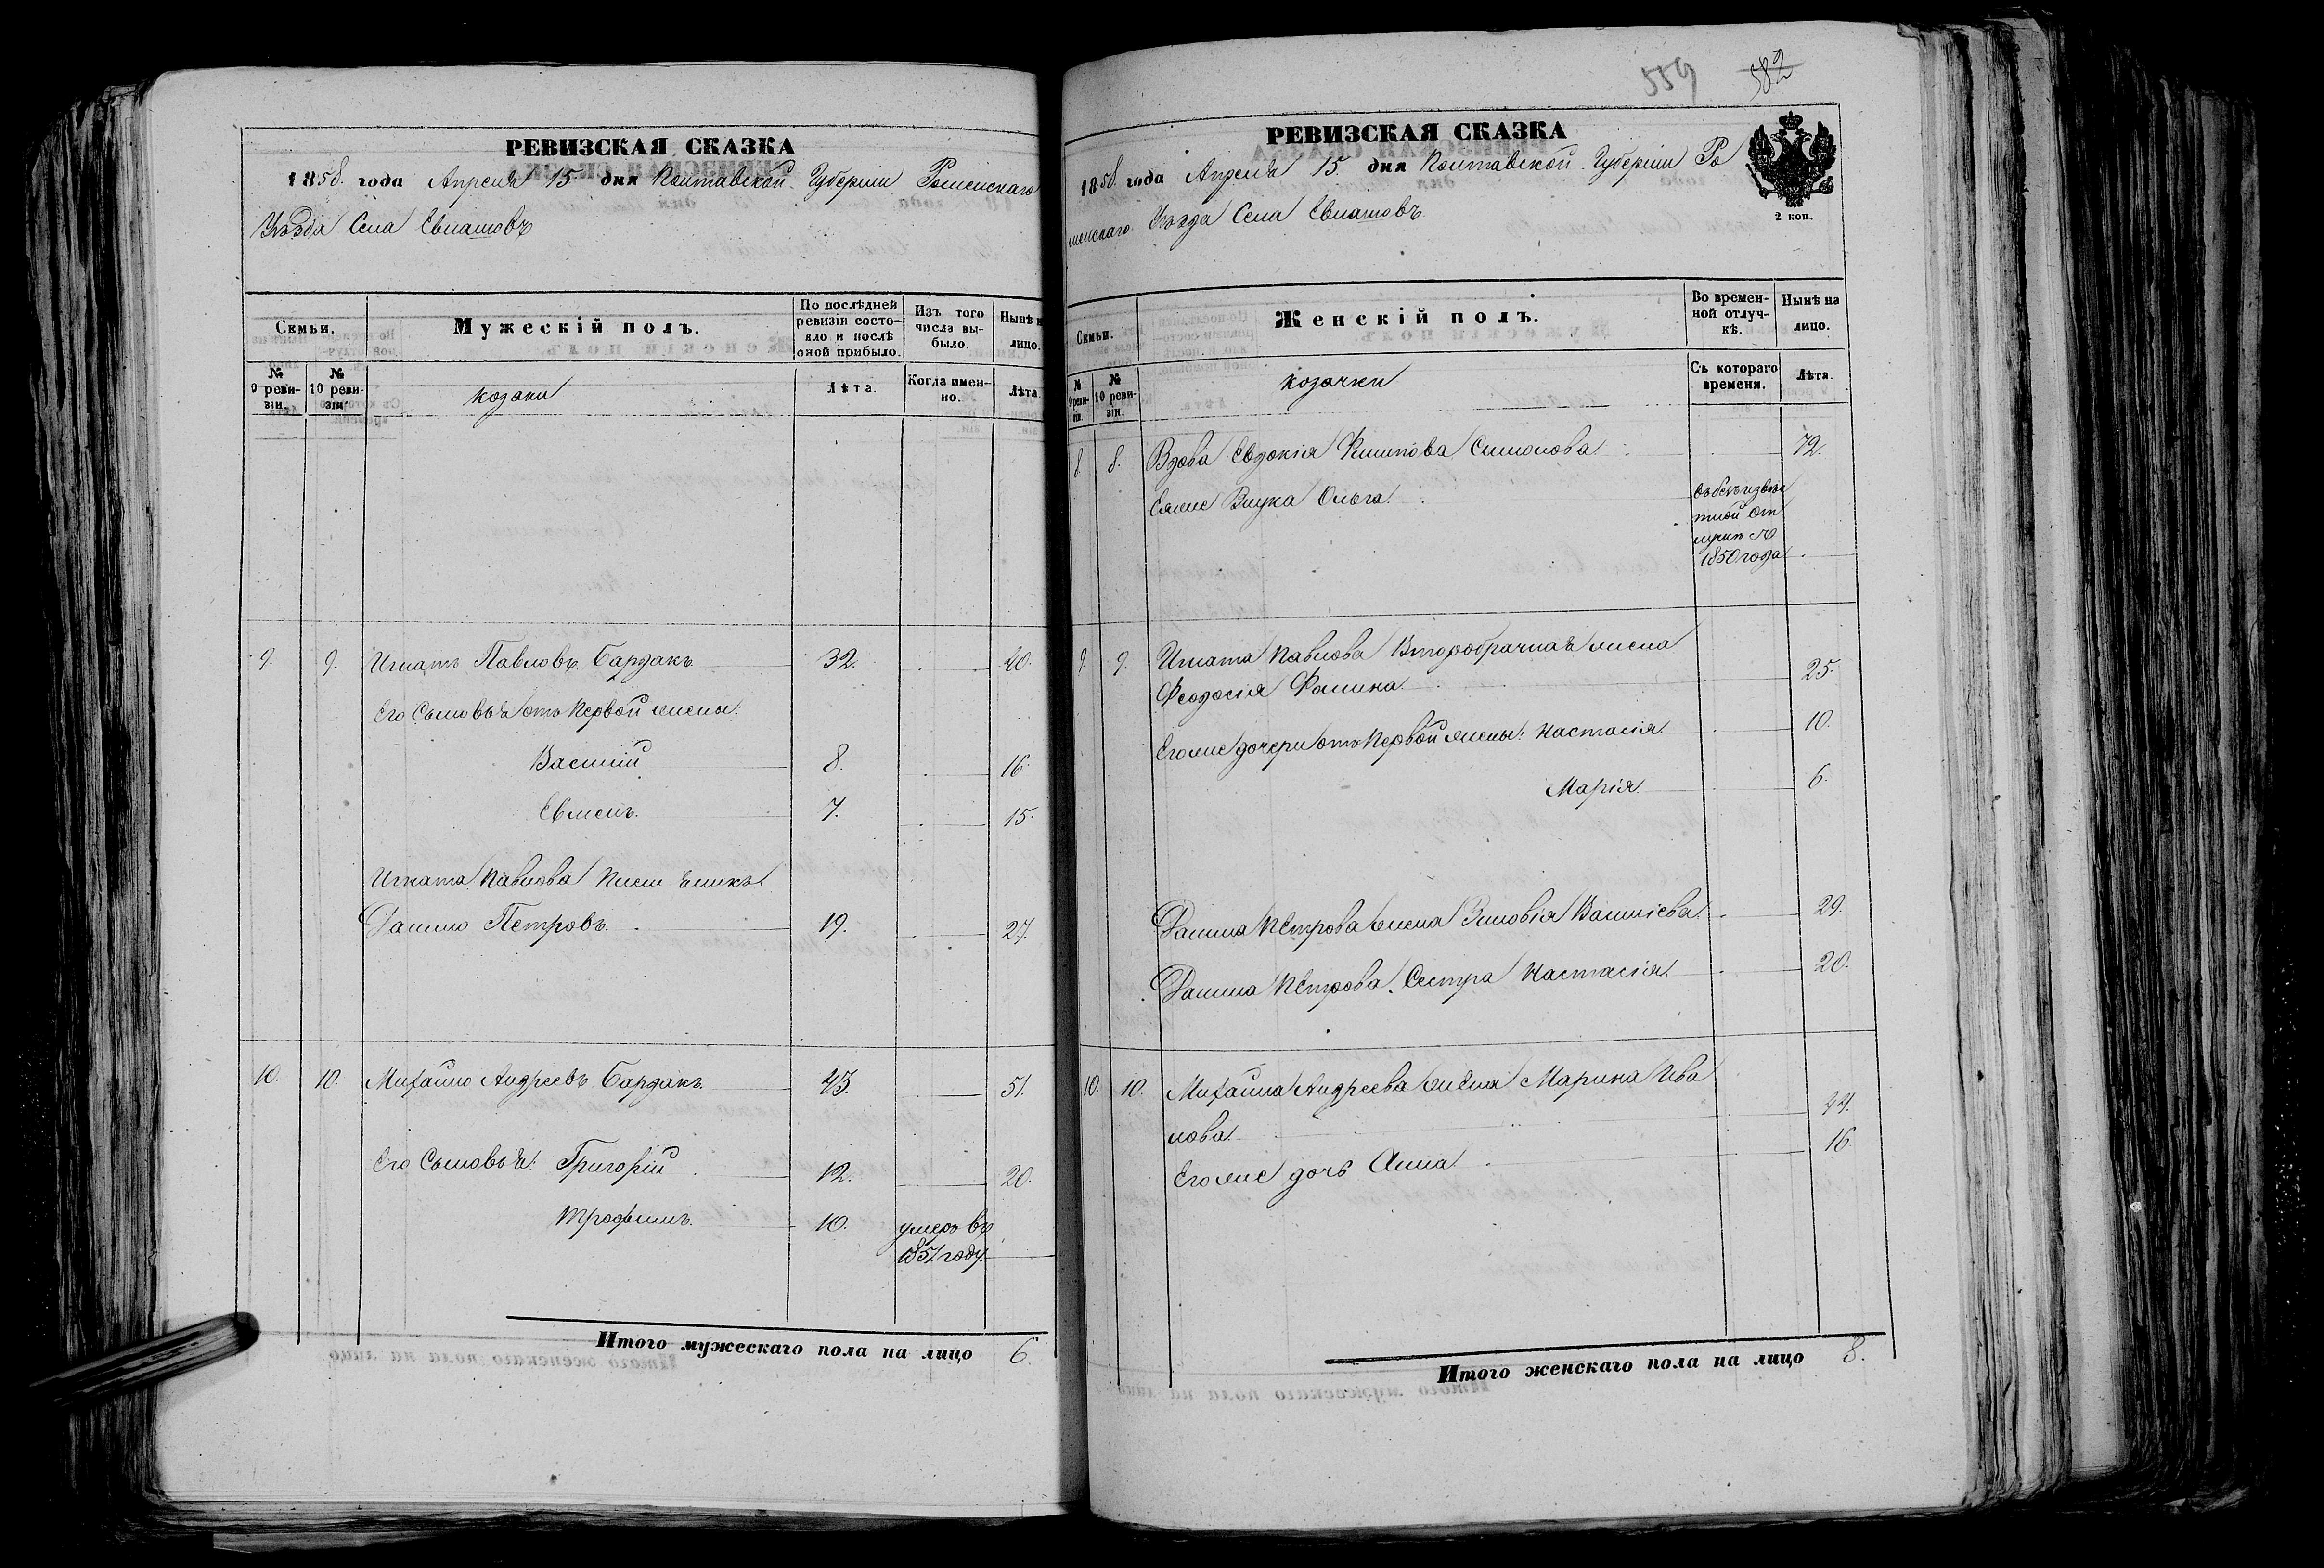 РЕВИЗСКАЯ СКАЗКА
1858. года Апреля 15 дня Полтавской Губерніи Роменскаго
Уѣзда Села Евлашовъ
Семьи.
Мужескій полъ.
По послѣдней ревизіи состояло и послѣ оной прибыло.
Изъ того числа выбыло.
Нынѣ на лицо.
№ 9 ревизіи.
№ 10 ревизіи.
козаки
Лѣта.
Когда именно.
Лѣта.
9. 9. Игнатъ Павловъ Бардакъ 32. 40.
Его Сыновья отъ Первой жены:
Василій 8. 16.
Евменъ. 7. 15.
Игната Павлова Племянникъ
Данило Петровъ. 19. 27.
10. 10. Михайло Андреевъ Бардакъ 43. 51.
Его Сыновья: Григорій 12. 20.
Трофимъ. 10. умеръ въ
1851 году.
Итого мужескаго пола на лицо 6.
559 582.
РЕВИЗСКАЯ СКАЗКА
1858. года Апреля 15 дня Полтавской Губерніи Ро
менскаго Уѣзда Села Евлашовъ
2 коп.
Семьи.
Женскій полъ.
Во временной отлучкѣ.
Нынѣ на лицо.
№ 9 ревизіи.
№ 10 ревизіи.
козачки
Съ котораго времени.
Лѣта.
8. 8. Вдова Евдокія Филипова Симонова 72.
Ея же Внука Ольга.
въ безъизвѣс
тной от
лучкѣ съ
1850 года
9. 9. Игната Павлова Второбрачная жена
Феодосія Фомина. 25.
Его же дочери отъ Первой жены: Настасія. 10.
Марія. 6.
Данила Петрова жена Зиновія Васильева 29.
Данила Петрова Сестра Настасія. 20.
10. 10. Михайла Андреева жена Марина Ива
нова. 44.
Его же дочь Анна. 16.
Итого женскаго пола на лицо 8.